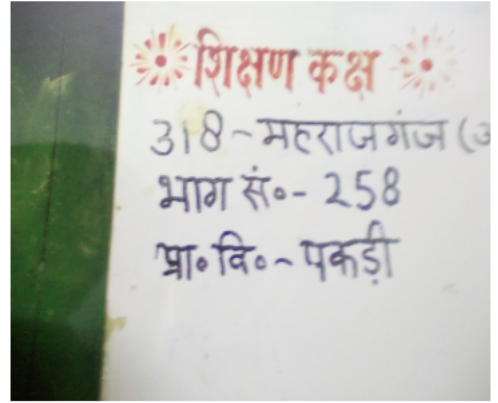 शिक्षण कक्ष
318-महराजगंज (
भाग सं०- 258
प्रा० वि०- पकड़ी